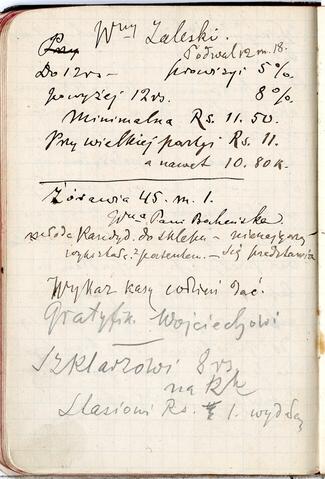 Przy Wny Zaleski.
Podwal 12 m. 18.
Do 12 rs – prowizyi 5%.
powyżej 12 rs. 8%.
Minimalna Rs. 11.50.
Przy wielkiej partyi Rs. 11.
a nawet 10.80 k.
Żórawia 45. m. 1.
Wna Pani
Kandyd. do sklepu –
z patentem. – się przedstawia
Wykaz kasy codzień dać.
Gratyfik. Wojciechowi
Szklarzowi 8 rs
na Rk
Stasiowi Rs. 1.